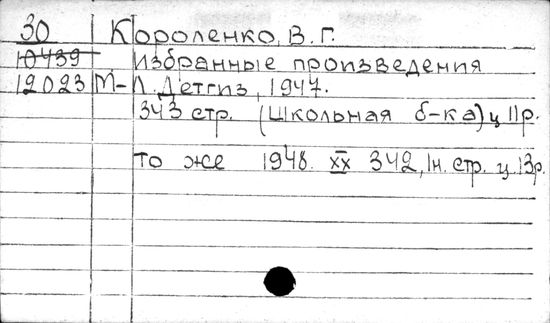 30 Короленко, В. Г.
10439 Избранные произведения
12023 М-Л. Детгиз, 1947.
343 стр. (Школьная б-ка) ц 11р.
то же 1948. XX 342, 1н. стр. ц. 13р.